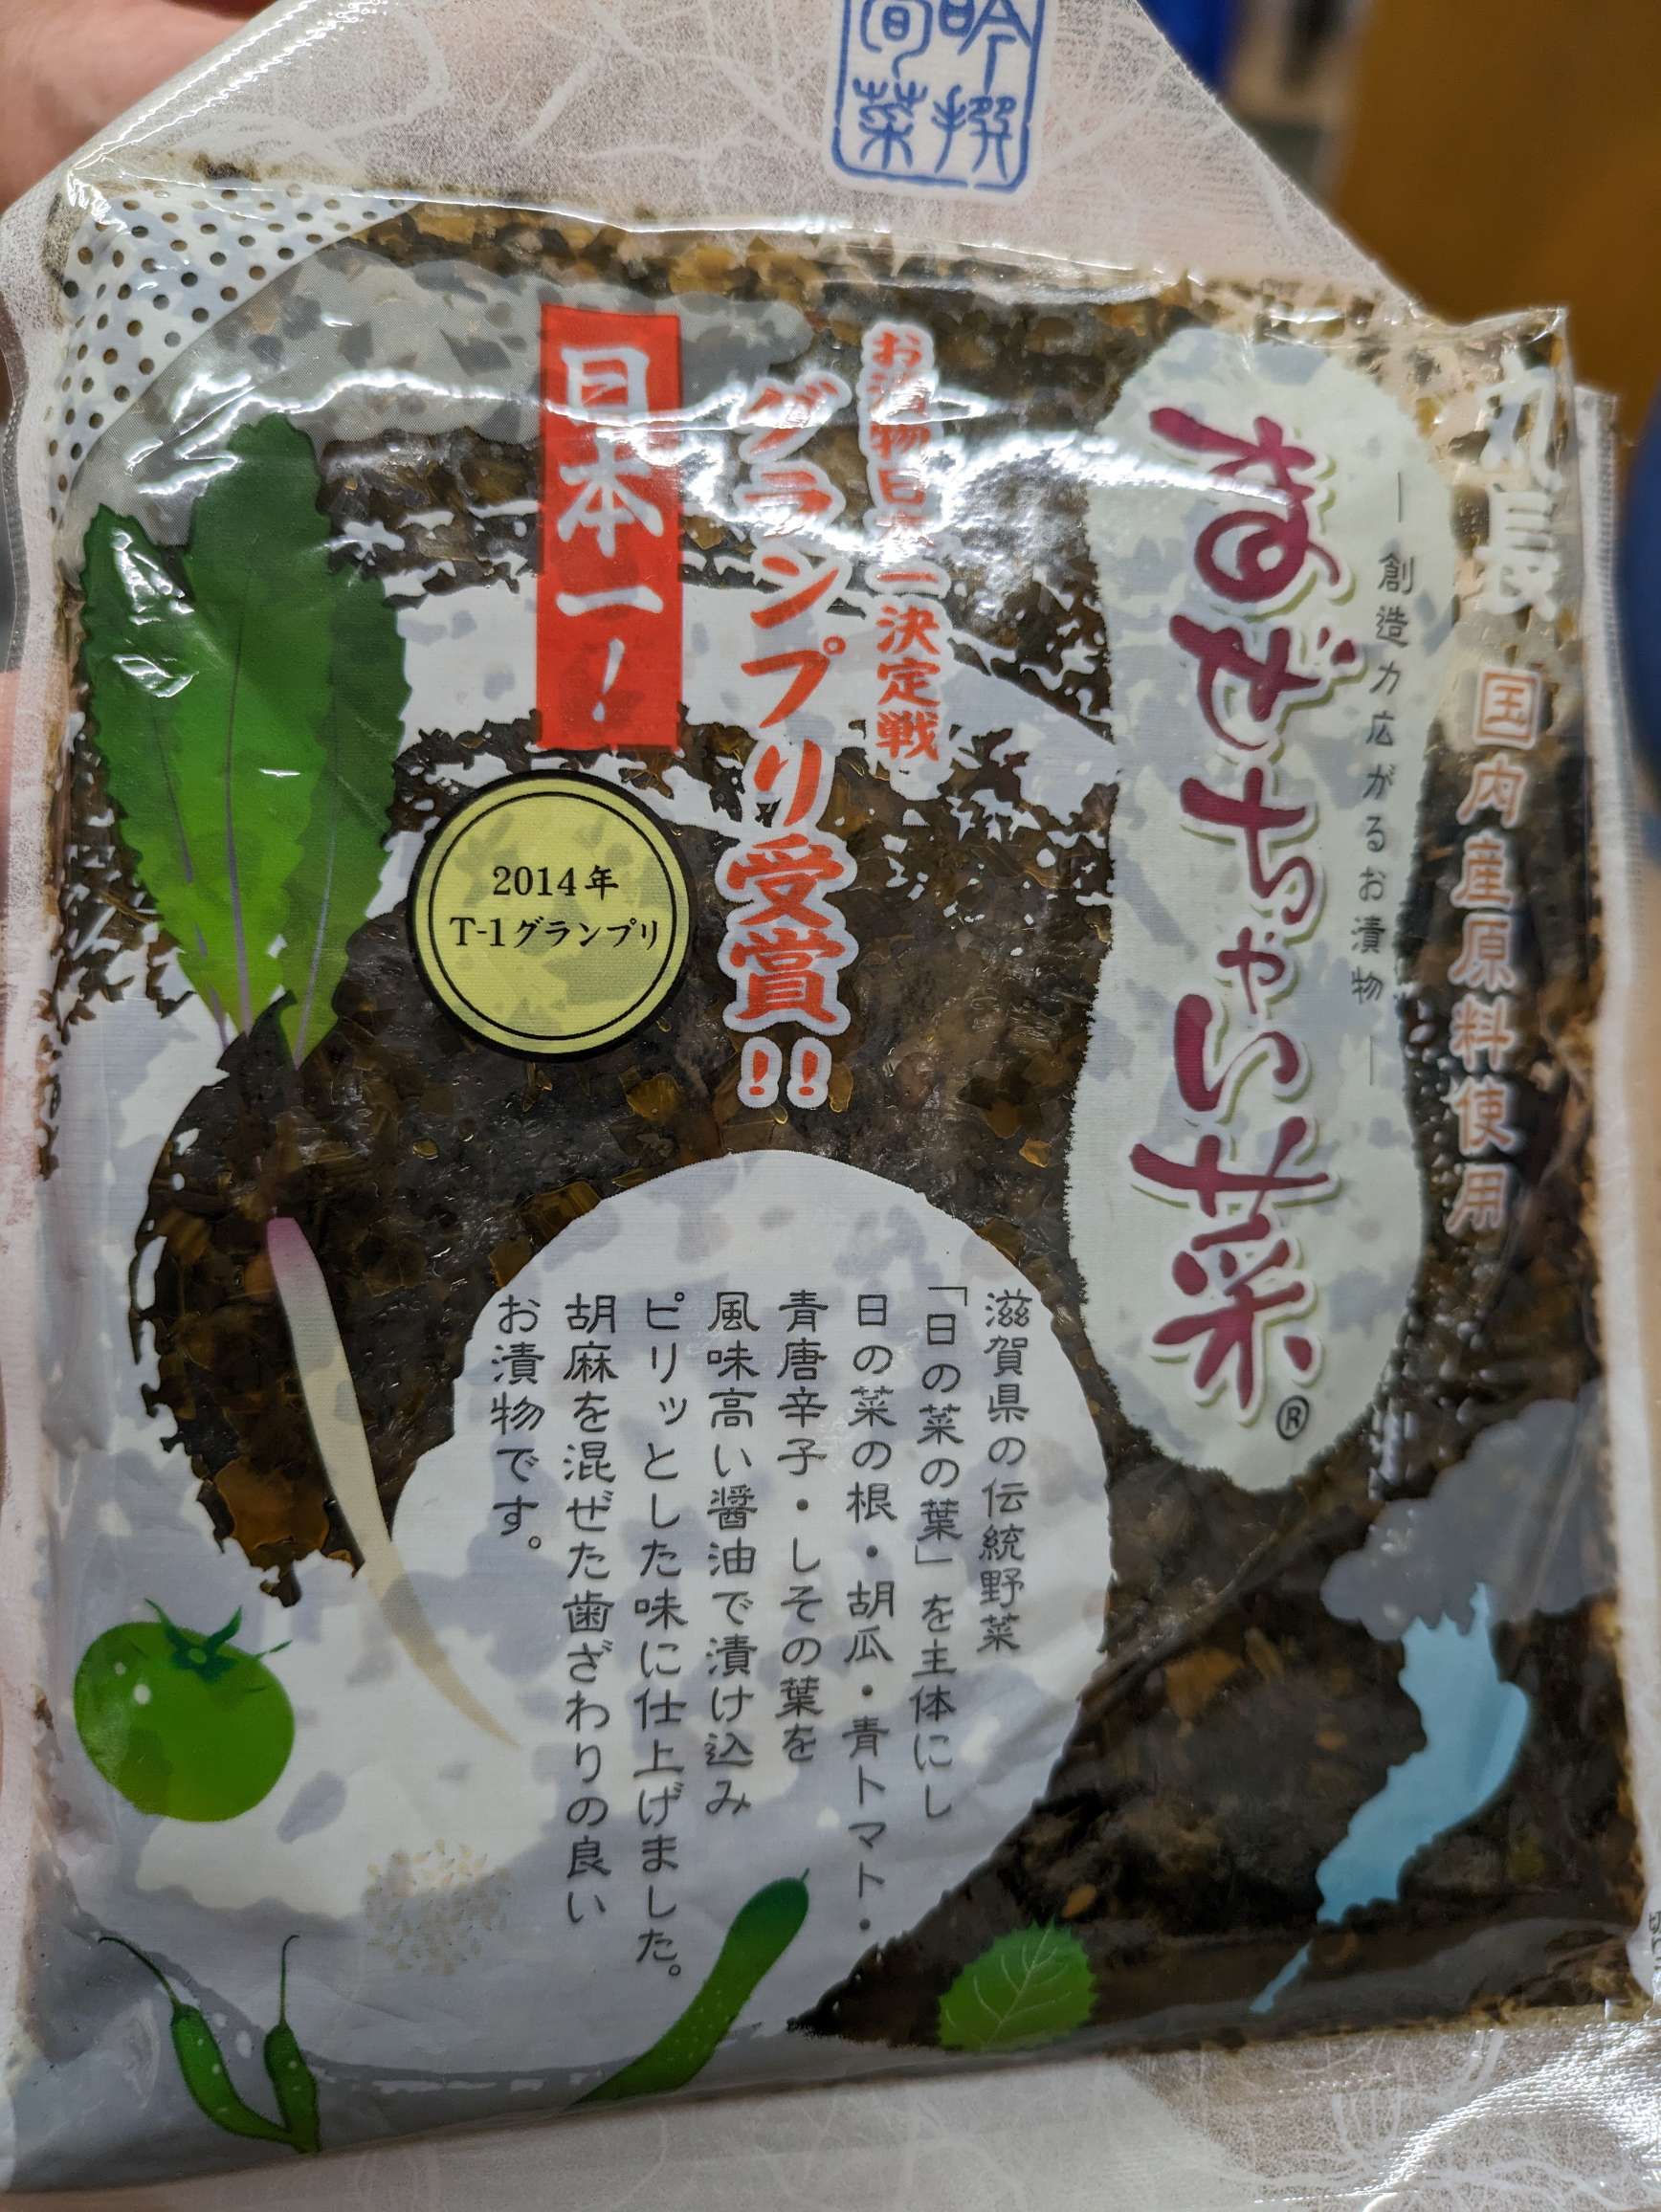 吟撰
旬菜
丸長
国内産原料使用
―創造力広がるお漬物―
まぜちゃい菜®
お漬物日本一決定戦
グランプリ受賞!!
日本一!
2014年
T-1グランプリ
滋賀県の伝統野菜
「日の菜の葉」を主体にし
日の菜の根・胡瓜・青トマト・
青唐辛子・しその葉を
風味高い醤油で漬け込み
ピリッとした味に仕上げました。
胡麻を混ぜた歯ざわりの良い
お漬物です。